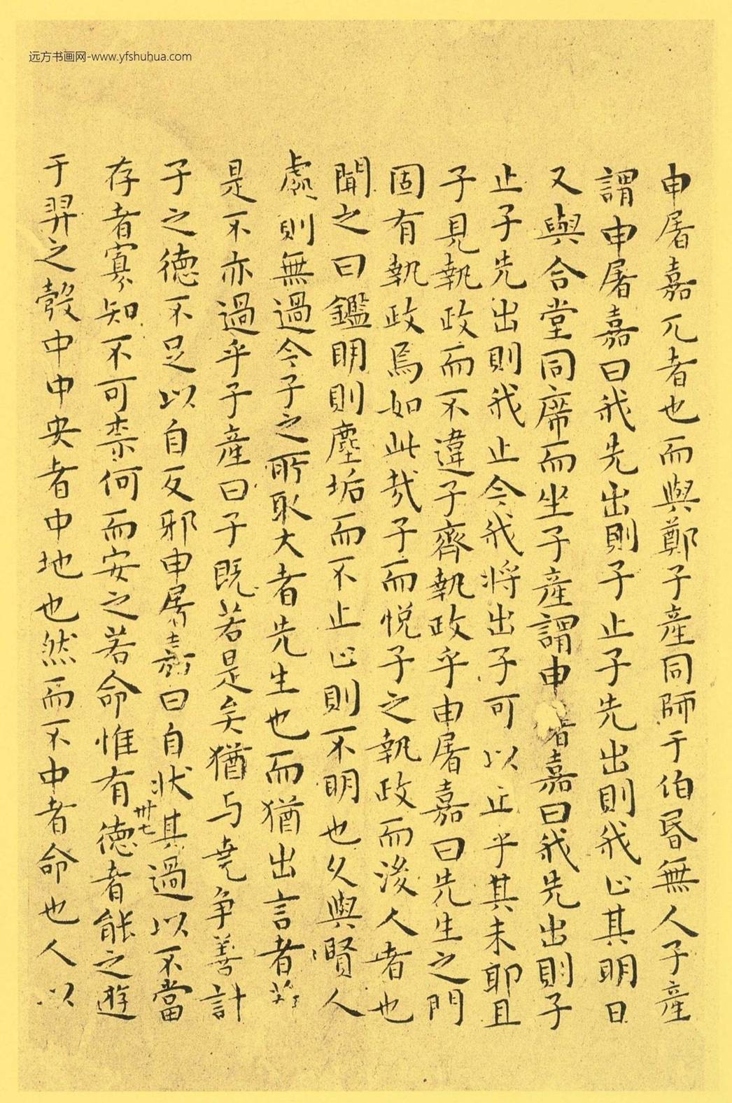 远方书画网-www.yfshuhua.com
申屠嘉兀者也而與鄭子產同師于伯昬無人子產
謂申屠嘉曰我先出則子止子先出則我止其明日
又與合堂同席而坐子產謂申屠嘉曰我先出則子
止子先出則我止今我將出子可以止乎其未耶且
子見執政而不違子齊執政乎申屠嘉曰先生之門
固有執政焉如此哉子而悅子之執政而後人者也
聞之曰鑑明則塵垢而不止止則不明也久與賢人
處則無過今子之所取大者先生也而猶出言者若
是不亦過乎子產曰子既若是矣猶与堯争善計
子之德不足以自反邪申屠嘉曰自状其過以不當
存者寡知不可柰何而安之若命惟有德者能之遊
卅七
于羿之彀中中央者中地也然而不中者命也人以